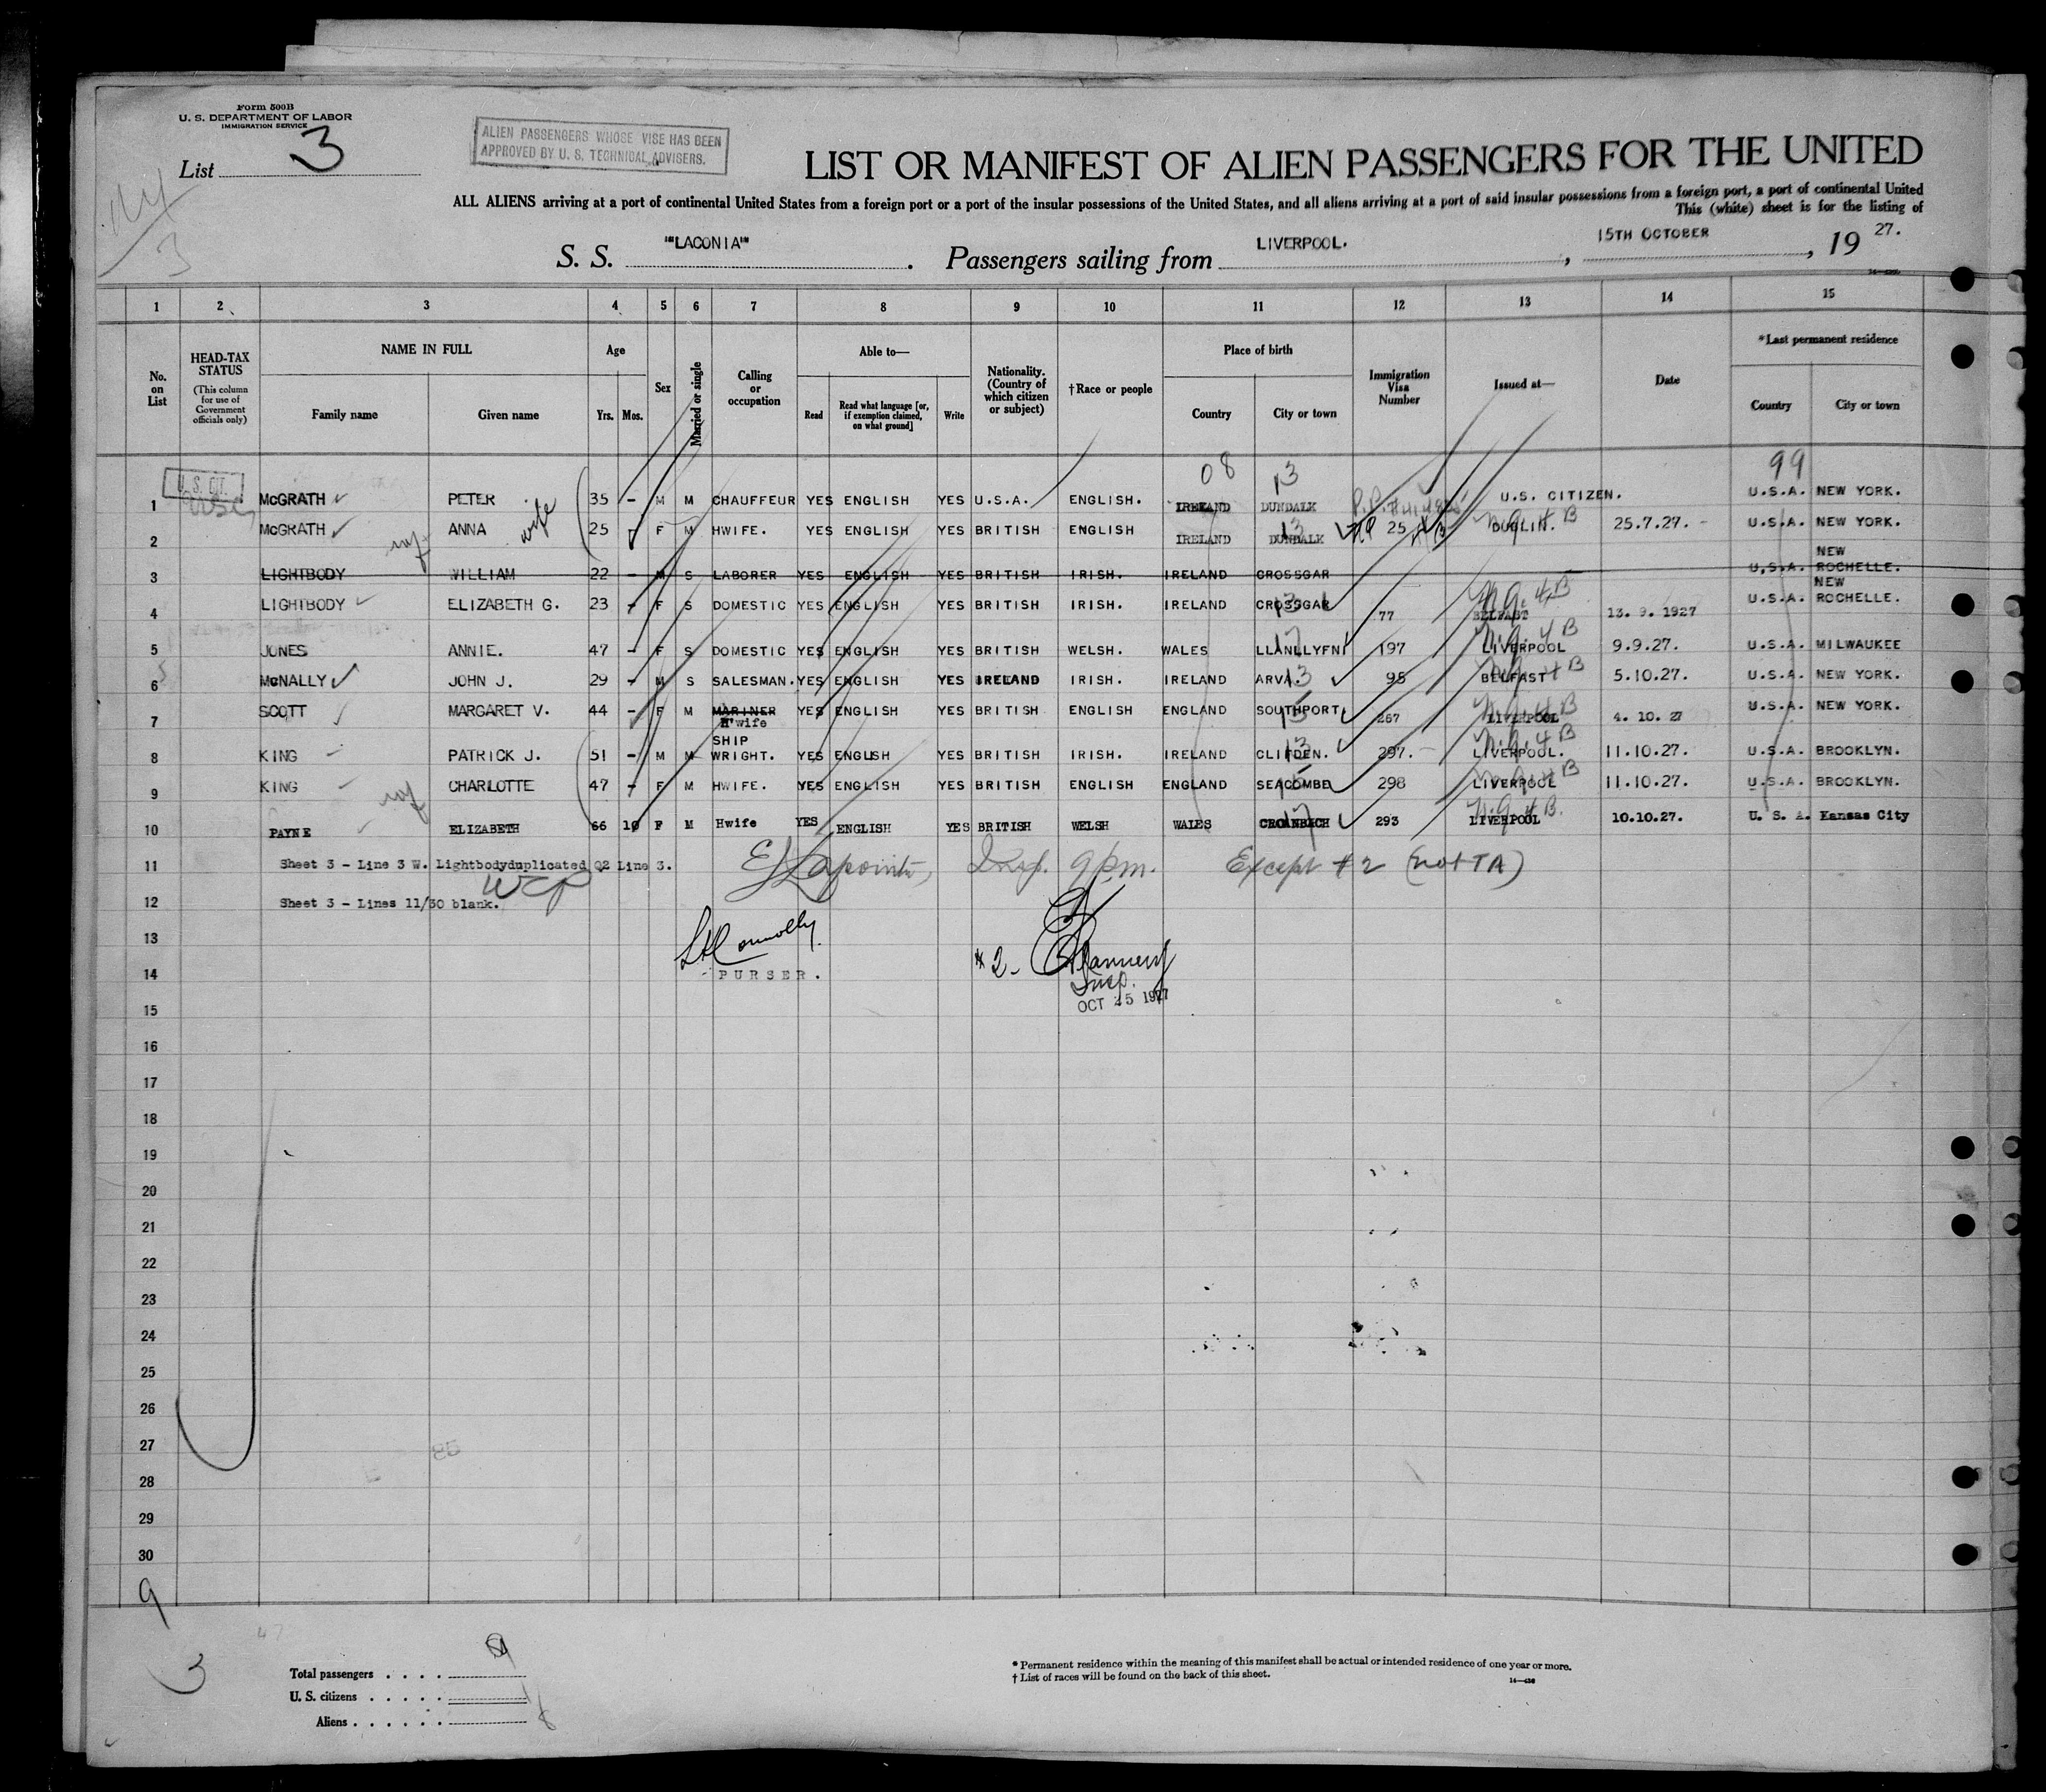 Form 500B
U. S. DEPARTMENT OF LABOR
IMMIGRATION SERVICE
List 3
ALIEN PASSENGERS WHOSE VISE HAS BEEN
APPROVED BY U. S. TECHNICAL ADVISERS.
LIST OR MANIFEST OF ALIEN PASSENGERS FOR THE UNITED
ALL ALIENS arriving at a port of continental United States from a foreign port or a port of the insular possessions of the United States, and all aliens arriving at a port of said insular possessions from a foreign port, a port of continental United
This (white) sheet is for the listing of
S. S. "LACONIA". Passengers sailing from LIVERPOOL., 15TH OCTOBER, 19 27.
3
1 2 3 4 5 6 7 8 9 10 11 12 13 14 15
No. on List
HEAD-TAX STATUS
(This column for use of Government officials only)
NAME IN FULL
Family name Given name
Age
Yrs. Mos.
Sex
Married or single
Calling or occupation
Able to—
Read Read what language [or, if exemption claimed, on what ground] Write
Nationality. (Country of which citizen or subject)
†Race or people
Place of birth
Country City or town
Immigration Visa Number
Issued at—
Date
*Last permanent residence
Country City or town
08 13 99
U.S. CIT.
USC
1 McGRATH PETER 35 – M M CHAUFFEUR YES ENGLISH YES U.S.A. ENGLISH. IRELAND DUNDALK U.S. CITIZEN. U.S.A. NEW YORK.
2 McGRATH ANNA wife 25 – F M HWIFE. YES ENGLISH YES BRITISH ENGLISH IRELAND DUNDALK 25 DUBLIN. 25.7.27. – U.S.A. NEW YORK.
3 LIGHTBODY WILLIAM 22 – M S LABORER YES ENGLISH YES BRITISH IRISH. IRELAND CROSSGAR U.S.A. NEW ROCHELLE.
4 LIGHTBODY ELIZABETH G. 23 – F S DOMESTIC YES ENGLISH YES BRITISH IRISH. IRELAND CROSSGAR 77 BELFAST 13. 9. 1927 U.S.A. NEW ROCHELLE.
5 JONES ANNIE. 47 – F S DOMESTIC YES ENGLISH YES BRITISH WELSH. WALES LLANLLYFNI 197 LIVERPOOL 9.9.27. U.S.A. MILWAUKEE
6 McNALLY JOHN J. 29 – M S SALESMAN. YES ENGLISH YES IRELAND IRISH. IRELAND ARVA. 95 BELFAST 5.10.27. U.S.A. NEW YORK.
7 SCOTT MARGARET V. 44 – F M MARINER H'wife YES ENGLISH YES BRITISH ENGLISH ENGLAND SOUTHPORT 257 LIVERPOOL 4. 10. 27 U.S.A. NEW YORK.
8 KING PATRICK J. 51 – M M SHIP WRIGHT. YES ENGLISH YES BRITISH IRISH. IRELAND CLIFDEN. 297. LIVERPOOL. 11.10.27. U.S.A. BROOKLYN.
9 KING CHARLOTTE 47 – F M HWIFE. YES ENGLISH YES BRITISH ENGLISH ENGLAND SEACOMBE 298 LIVERPOOL 11.10.27. U.S.A. BROOKLYN.
10 PAYNE ELIZABETH 66 10 F M Hwife YES ENGLISH YES BRITISH WELSH WALES 293 LIVERPOOL 10.10.27. U. S. A. Kansas City
11 Sheet 3 – Line 3 W. Lightbodyduplicated Q2 Line 3. Insp. 9pm. Except #2 (not TA)
12 Sheet 3 – Lines 11/30 blank.
13 Connolly
14 PURSER. #2 – Insp.
15 OCT 25 1927
16
17
18
19
20
21
22
23
24
25
26
27
28
29
30
9
3
Total passengers . . . . 9
U. S. citizens . . . . . 1
Aliens . . . . . . 8
* Permanent residence within the meaning of this manifest shall be actual or intended residence of one year or more.
† List of races will be found on the back of this sheet.